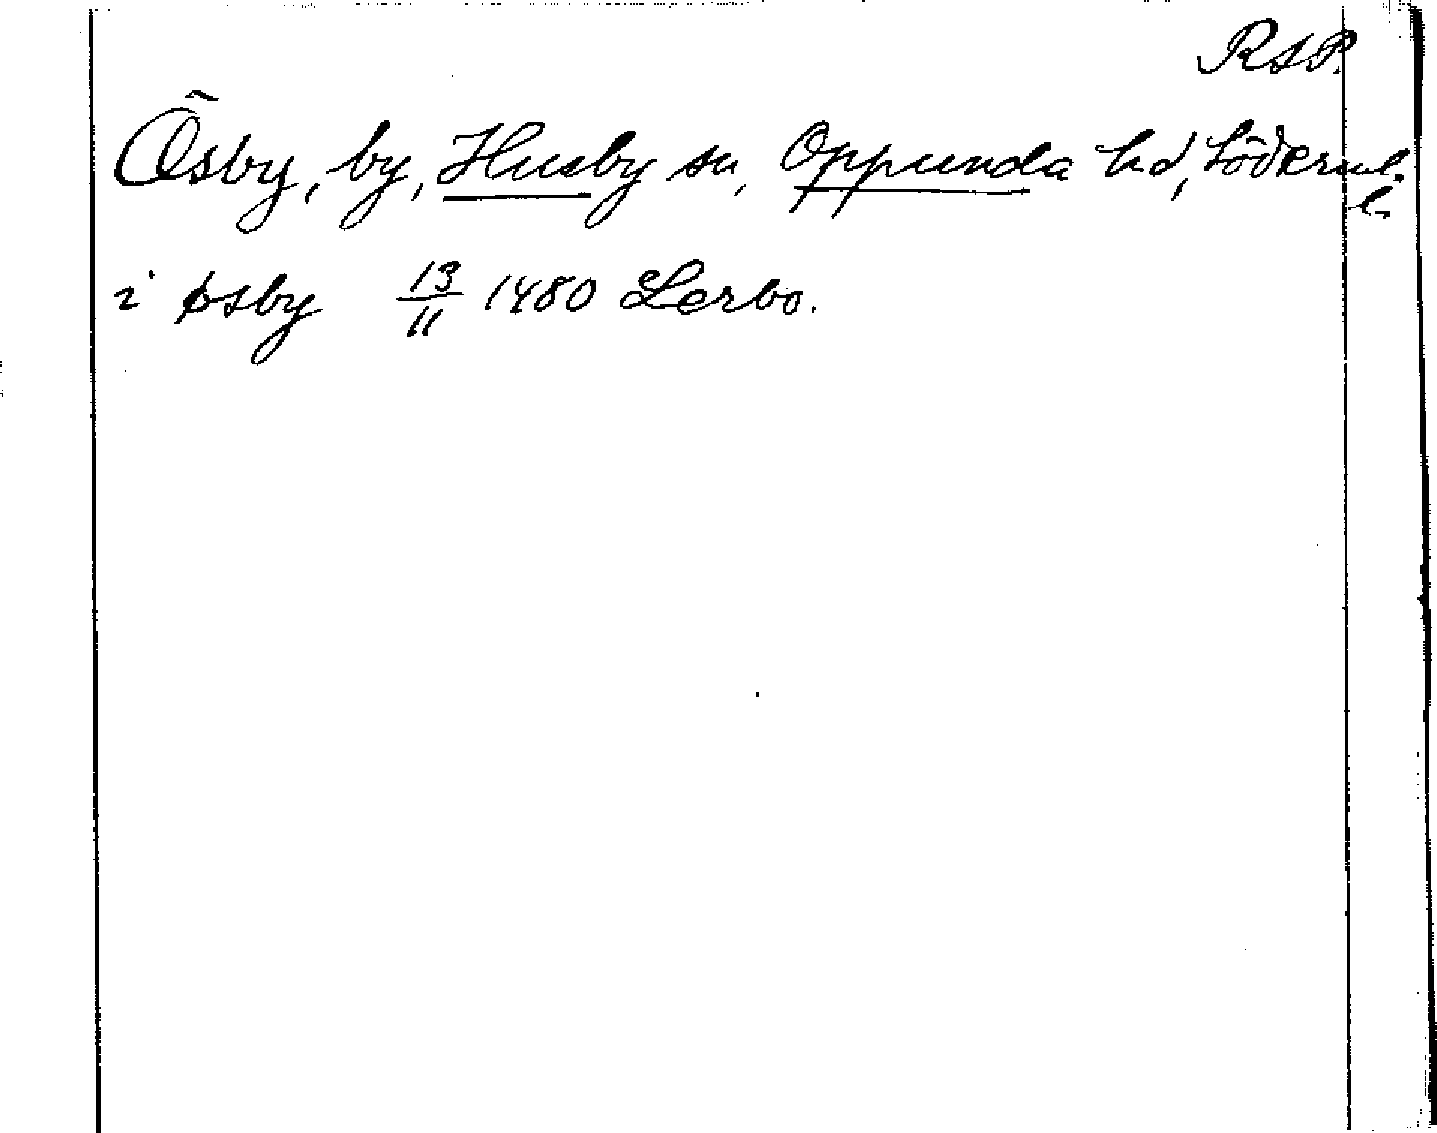 RAP.
Ösby, by, Husby sn, Oppunda hd, Söderml.
l.
i øsby 13/11 1480 Lerbo.